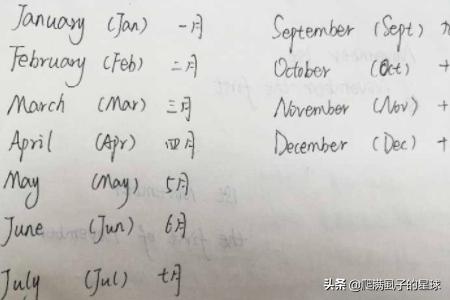 January (Jan) 一月
February (Feb) 二月
March (Mar) 三月
April (Apr) 四月
May (May) 5月
June (Jun) 6月
July (Jul) 七月
September (Sept)
October (Oct) 十
November (Nov) 十
December (Dec) 十
头条 @爬满虱子的星球